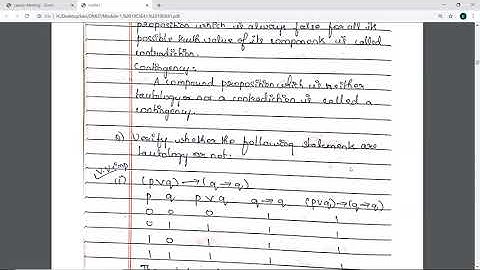 proposition which is always false for all its
possible truth value of its components is called
contradiction.
Contingency:-
A compound proposition which is neither
tautology or nor a contradiction is called a
contingency.
Q) Verify whether the following statements are
tautology or not.
V.V.imp
(i) (p∨q) → (q→q)
p q p∨q q→q (p∨q)→(q→q)
0 0 0 1 1
0 1 1 1 1
1 0 1 1 1
1 1 1 1 1